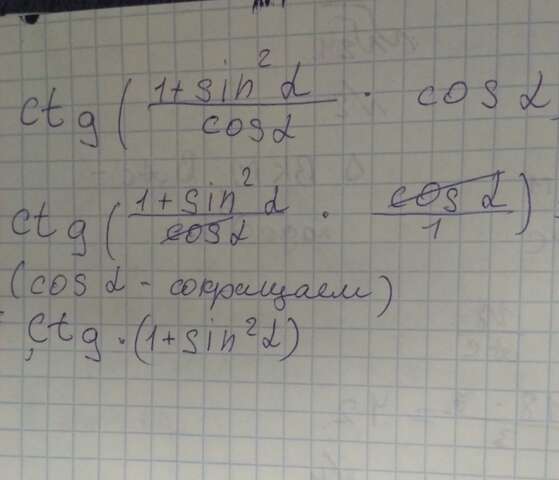 ctg ( 1+sin²α / cosα · cos α
ctg ( 1+sin²α / cosα · cos α / 1 )
(cos α - сокращаем)
ctg · (1+sin²α)